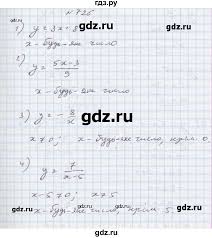 гдз.ру
№ 726
1) y = 3x - 8
x - будь-яке число
2)
y = 5x-3/9
x - будь-яке число
3) y = - 8/x
x ≠ 0; x - будь-яке число, крім 0
4)
y = 7/x-5
x-5 ≠ 0; x ≠ 5
x - будь-яке число, крім 5